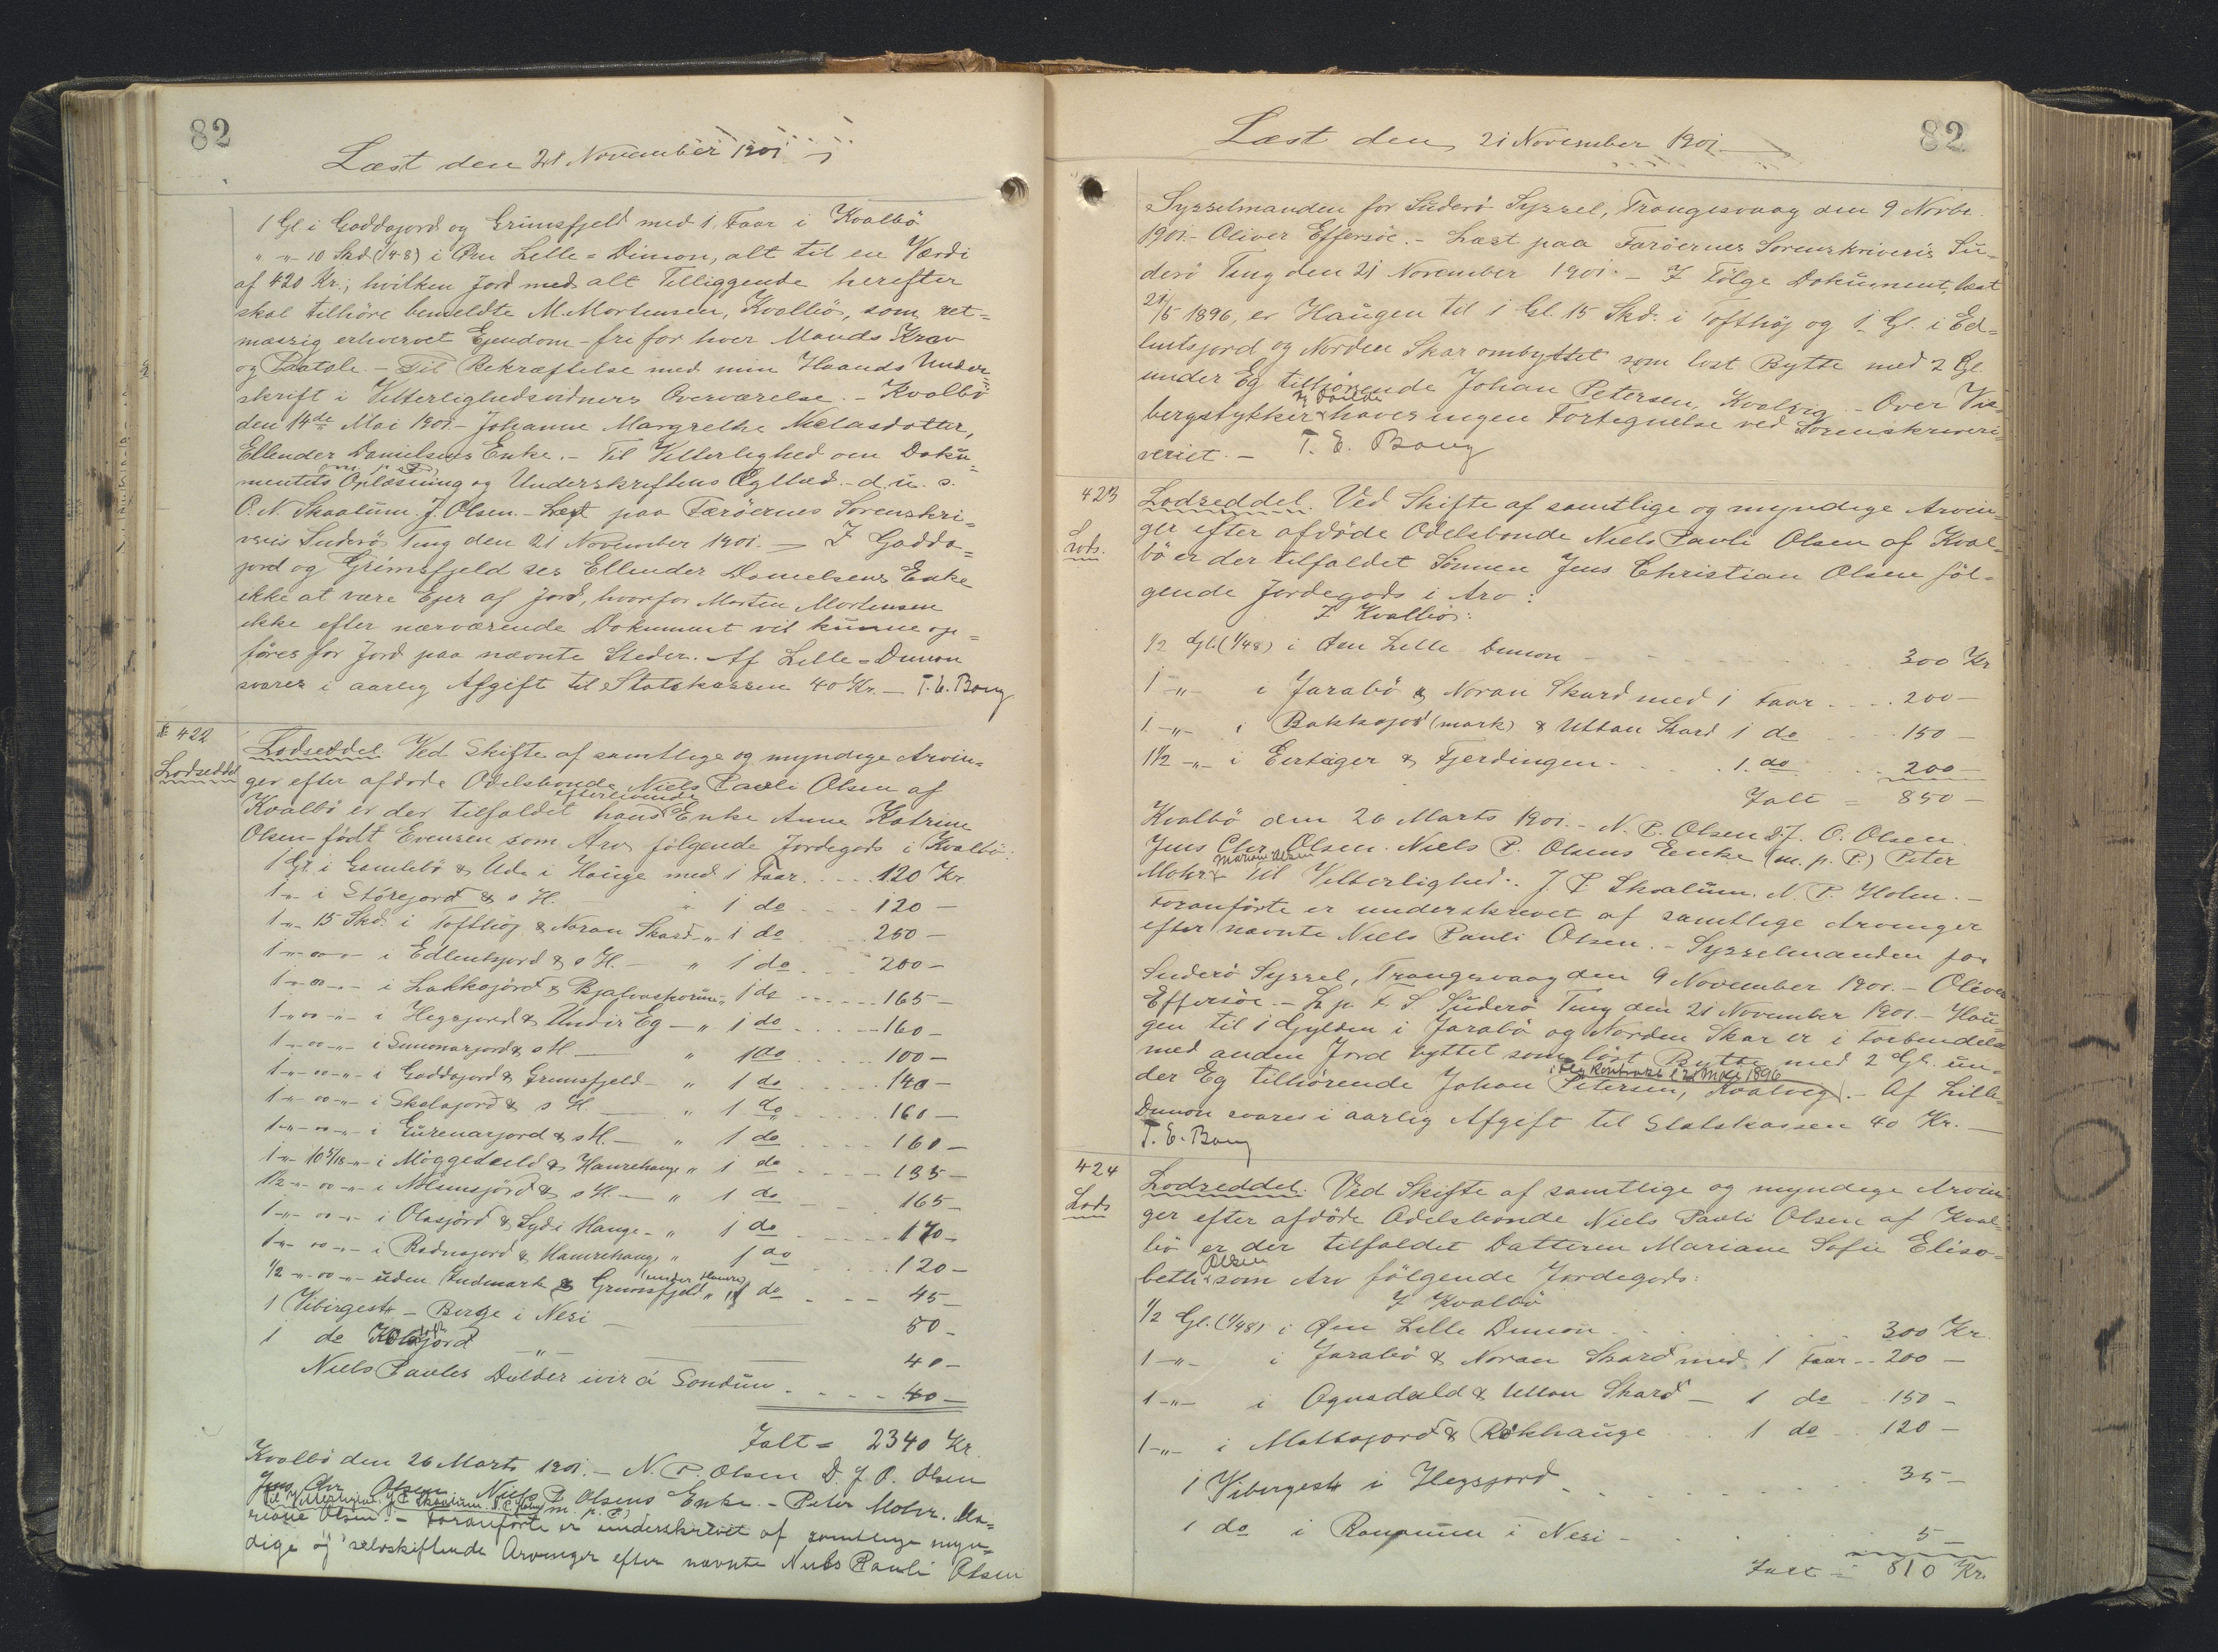 82
Læst den 21 November 1901
1 Gl i Gaddajord og Grimsfjeld med 1 Faar i Kvalbö
" " 10 Skd (1/48) i Øen Lille=Dimon, alt til en Værdi
af 420 Kr.; hvilken Jord med alt Tilliggende herefter
skal tilhöre bemeldte M. Mortensen, Kvalbö, som ret=
mæssig erhvervet Ejendom - fri for hver Mands Krav
og Paatale. - Til Bekræftelse med min Haands Under=
skrift i Vitterlighedsvidners Overværelse. - Kvalbö
den 14de Mai 1901 - Johanne Margrethe Niclasdotter,
Ellinder Danielsens Enke. - Til Vitterlighed om Doku=
m. p. P.
mentets Oplæsning og Underskriftens Ægthed. - d. u. s.
O. N. Skaalum. J. Olsen. - Læst paa Færöernes Sorenskri=
veris Suderö Ting den 21 November 1901. - I Gadda=
jord og Grimsfjeld ses Ellinder Danielsens Enke
ikke at være Ejer af Jord, hvorfor Morten Mortensen
ikke efter nærværende Dokument vil kunne op=
föres for Jord paa nævnte Steder. Af Lille=Dimon
svares i aarlig Afgift til Statskassen 40 Kr. - T. E. Bang
№ 422
Lodseddel
Lodseddel. Ved Skifte af samtlige og myndige Arvin=
ger efter afdöde Odelsbonde Niels Pauli Olsen af
efterlevende
Kvalbö er der tilfaldet hans Enke Anne Katrine
Olsen födt Evensen som Arv fölgende Jordegods i Kvalbö:
1 Gl. i Gamlebö & Ude i Hauge med 1 Faar .... 120 Kr
1 " i Störejord & s H. - " 1 do .... 120 -
1 " 15 Skd. i Tofthöj & Noran Skard " 1 do .... 200 -
1 " 00 " i Edlentsjord & s H. - " 1 do .... 200 -
1 " 00 " i Lakkajörd & Bjafvaskorun " 1 do .... 165 -
1 " 00 " i Hegsjord & Undir Eg - " 1 do .... 160 -
1 " 00 " i Simonarjord & s H. - " 1 do .... 100 -
1 " 00 " i Gaddajord & Grimsfjeld - " 1 do .... 140 -
1 " 00 " i Skalajord & s H. - " 1 do .... 160 -
1 " 00 " i Gurenarjord & s H. - " 1 do .... 160 -
1 " 10 5/18 " i Möggedeild & Hamrehauge " 1 do .... 135 -
1/2 " 00 " i Nolsunsjörd & s H. - " 1 do .... 165 -
1 " 00 " i Olasjörd & Sydi Hauge - " 1 do .... 170 -
1 " 00 " i Rednajord & Hamrehauge " 1 do .... 120 -
(under Hamri)
1/2 " 00 " uden Indmark & Grimsfjeld " 1 do .... 45 -
1 Vibirgestk - Berge i Nesi - 50 -
1 do jord - " - 40 -
Niels Paules Deilder ivir á Sondum .... 40 -
Ialt = 2340 Kr.
Kvalbö den 26 Marts 1901. - N. P. Olsen D. J. O. Olsen
Jens Chr Olsen Niels P. Olsens Enke. - Peter Mohr. Ma=
Til Vitterlighed. J. P. Skaalum. N. P. Holm m. p. P.)
riane Olsen. - Foranförte er underskrevet af samtlige myn=
dige og selvskiftende Arvinger efter nævnte Niels Pauli Olsen
82
Læst den 21 November 1901
Sysselmanden for Suderö Syssel, Trangesvaag den 9 Novbr.
1901. - Oliver Effersöe. - Læst paa Færöernes Sorenskriveris Su=
derö Ting den 21 November 1901. - I Fölge Dokument, læst
21/5 1896, er Haugen til 1 Gl. 15 Skd. i Tofthöj og 1 Gl. i Ed=
lentsjord og Norden Skar ombyttet som löst Bytte med 2 Gl.
under Eg tilhörende Johan Petersen, Kvalvig. - Over Vi=
& Deilder
bergstykker haves ingen Fortegnelse ved Sorenskriveri=
veriet. - T. E. Bang
423
Lods.
Lodseddel. Ved Skifte af samtlige og myndige Arvin=
ger efter afdöde Odelsbonde Niels Pauli Olsen af Kval=
bö er der tilfaldet Sönnen Jens Christian Olsen föl=
gende Jordegods i Arv:
I Kvalbö:
1/2 Gl. (1/48) i Øen Lille Dimon .... 300 Kr
1 " i Jarabö & Noran Skard med 1 Faar .... 200 -
1 " i Bakkajord (mark) & Uttan Skard 1 do .... 150 -
1 1/2 " i Eirtéiger & Fjerdingen .... 1 do .... 200 -
Ialt = 850 -
Kvalbö den 26 Marts 1901. - N. P. Olsen D. J. O. Olsen.
Jens Chr. Olsen. Niels P. Olsens Enke (m. p. P.) Peter
Mariane Olsen
Mohr Til Vitterlighed. J. P. Skaalum. N. P. Holm. -
Foranförte er underskrevet af samtlige Arvinger
efter nævnte Niels Pauli Olsen. - Sysselmanden for
Suderö Syssel, Trangesvaag den 9 November 1901. - Oliver
Effersöe. - L. p. F. S. Suderö Ting den 21 November 1901. - Hau=
gen til 1 Gylden i Jarabö og Norden Skar er i Forbindelse
med anden Jord byttet som löst Bytte med 2 Gl. un=
i Flg Kontrakt l 21 Maj 1896
der Eg tilhörende Johan Petersen, Kvalvig. - Af Lille=
Dimon svares i aarlig Afgift til Statskassen 40 Kr. -
T. E. Bang
424
Lods
Lodseddel. Ved Skifte af samtlige og myndige Arvin=
ger efter afdöde Odelsbonde Niels Pauli Olsen af Kval=
bö er der tilfaldet Datteren Mariane Sofie Elisa=
Olsen
beth som Arv fölgende Jordegods:
I Kvalbö
1/2 Gl. (1/48) i Øen Lille Dimon .... 300 Kr.
1 " i Jarabö & Noran Skard med 1 Faar .. 200 -
1 " i Ognadeild & Uttan Skard - 1 do .. 150 -
1 " i Mattajord & Rökhauge .. 1 do .. 120 -
1 Vibergestk i Hegsjord .... 35 -
1 do i Ranamun i Nesi .... 5 -
Ialt = 810 Kr.